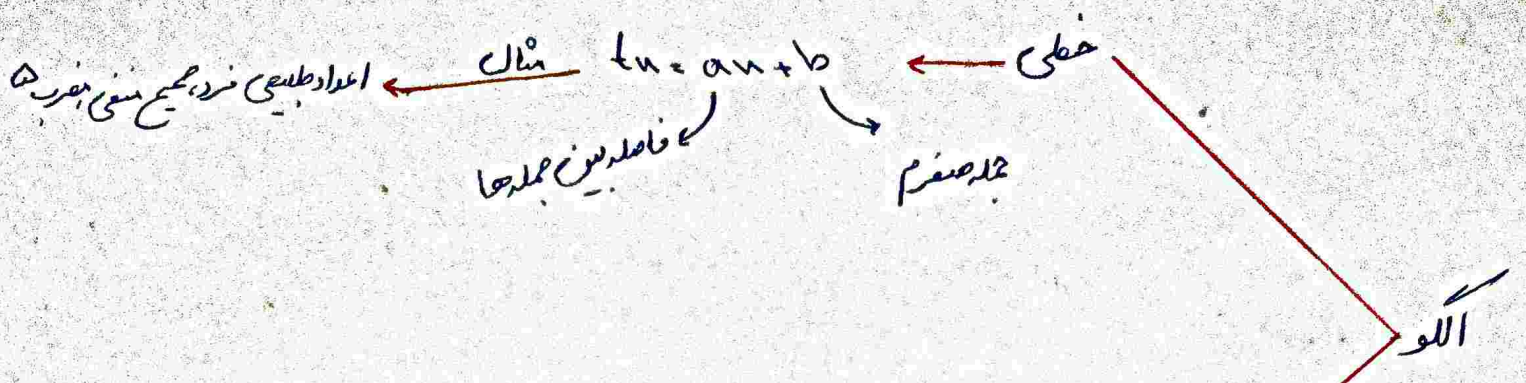 خطی ← tn = an + b مثال ← اعداد طبیعی فرد، صحیح منفی، مضرب ۵
فاصله بین جمله ها
جمله صفرم
الگو